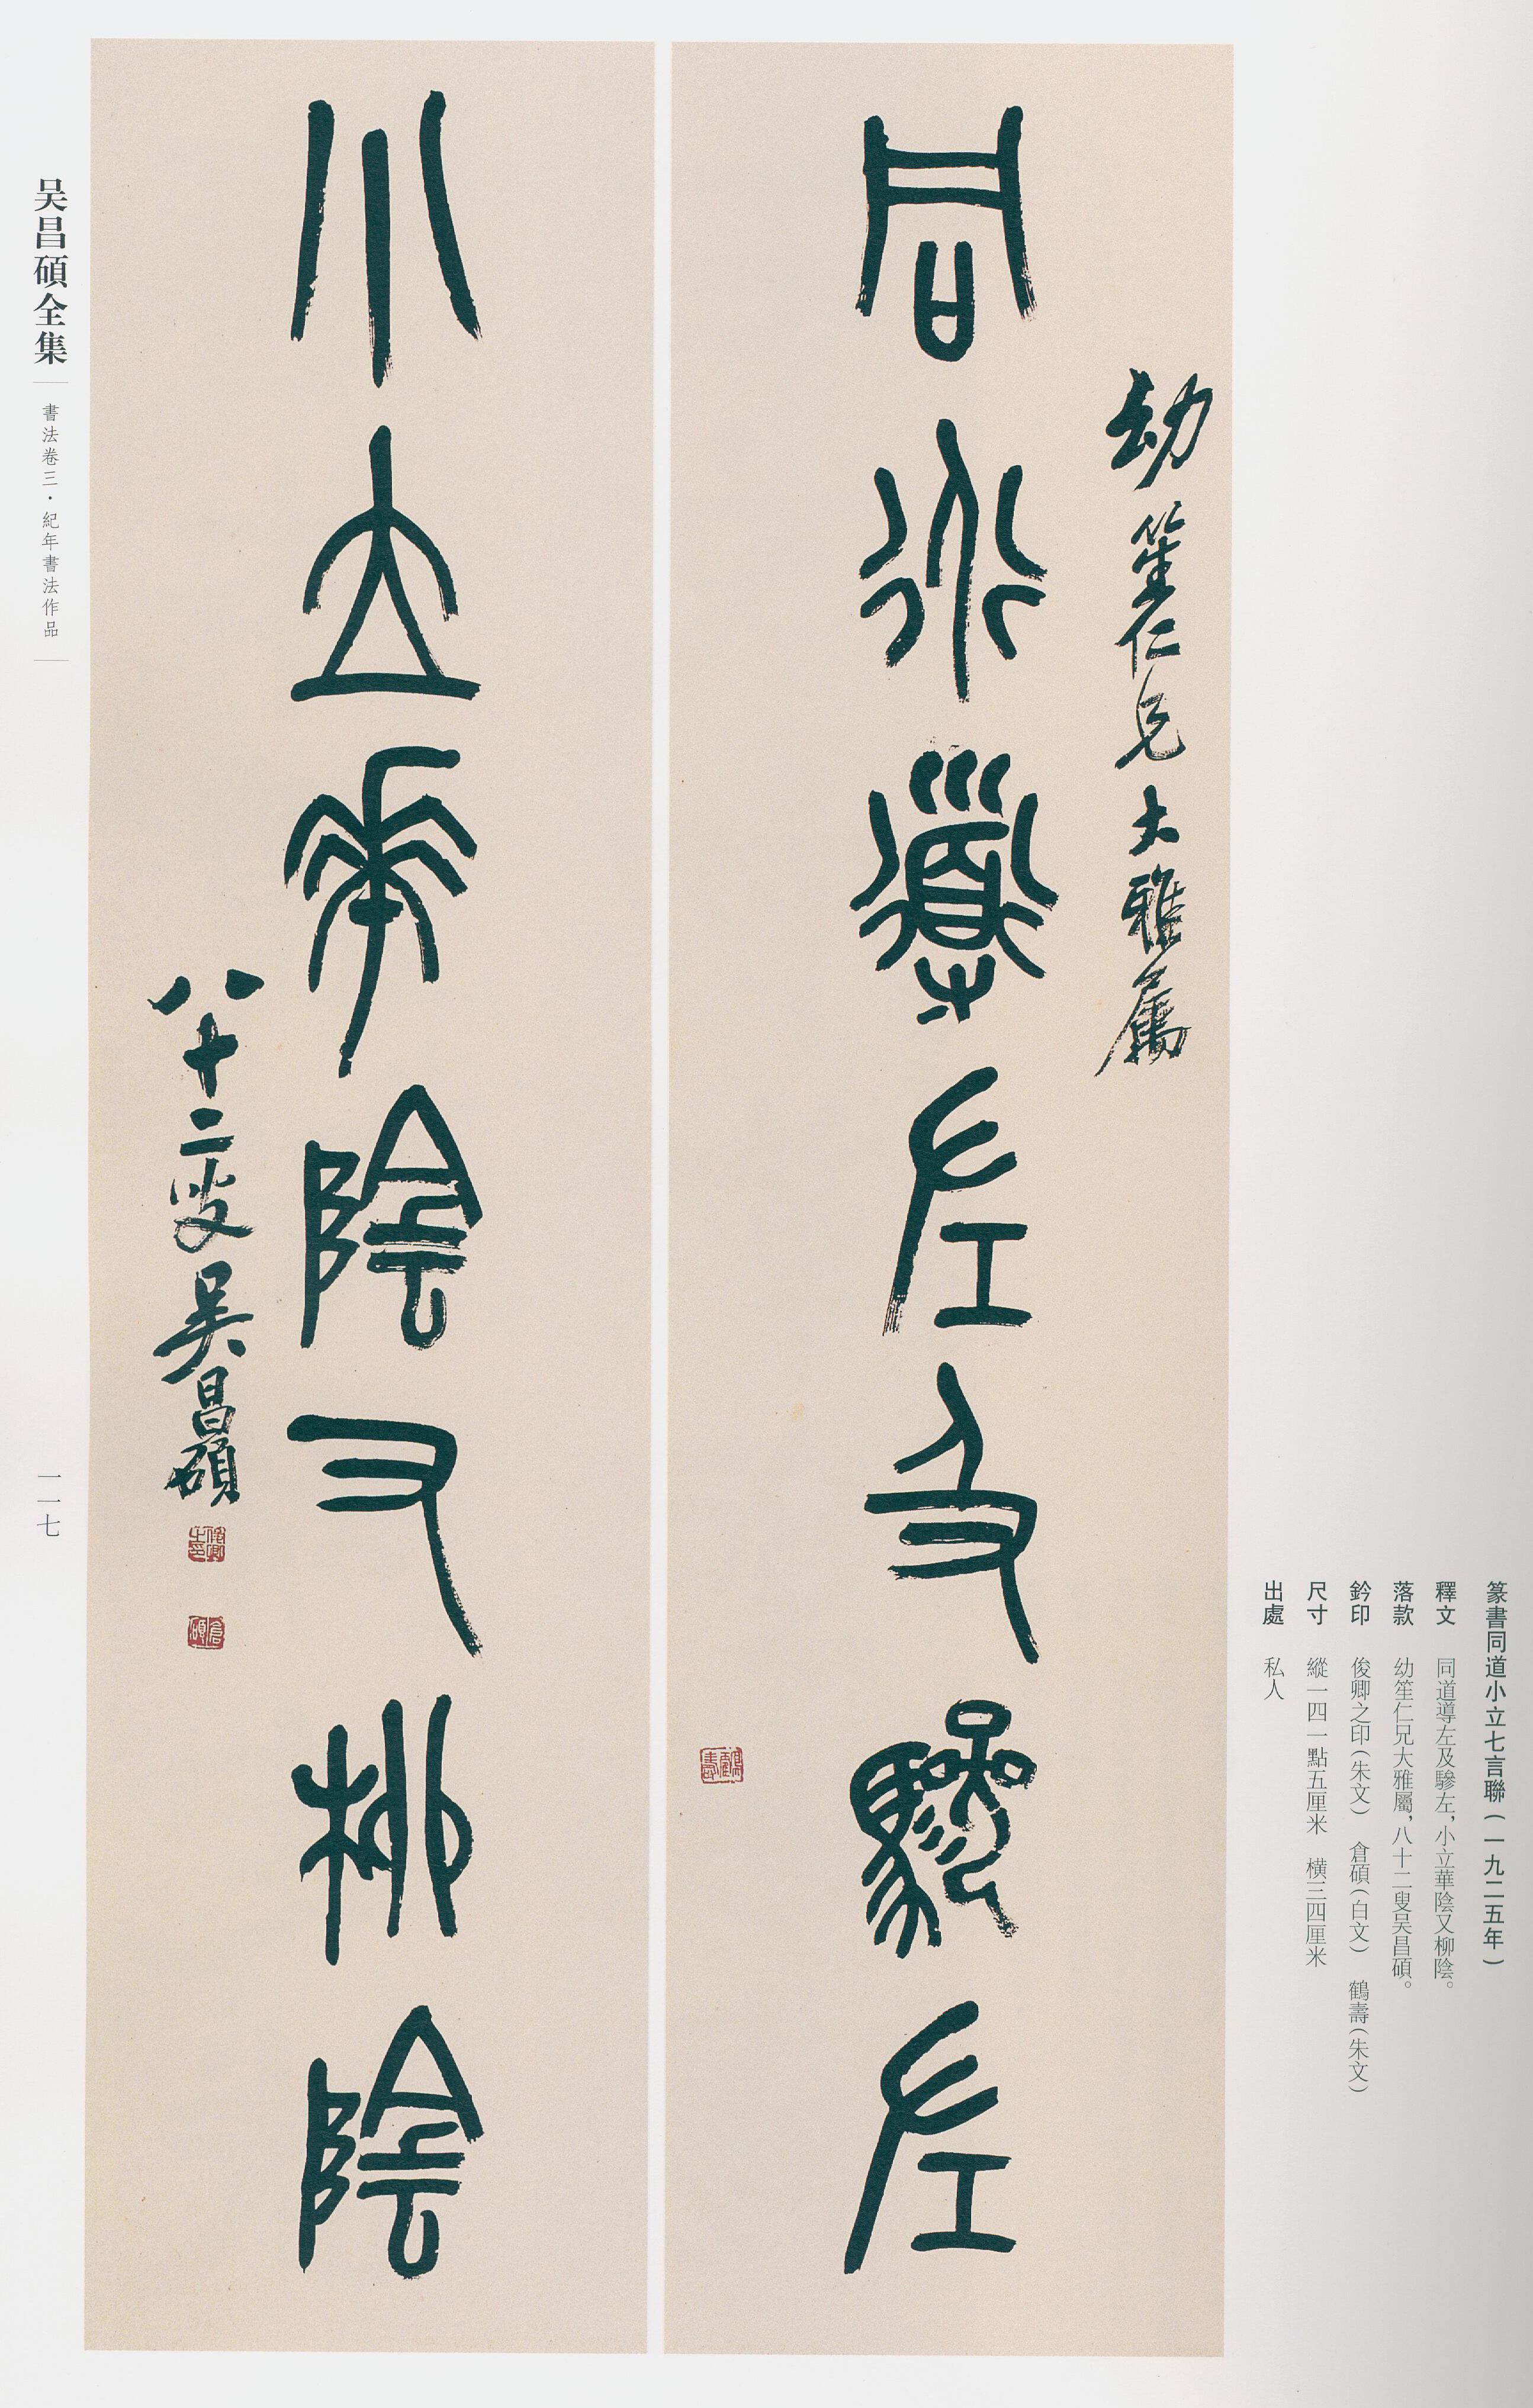 篆書同道小立七言聯(一九二五年)
釋文 同道導左及驂左，小立華陰又柳陰。
落款 幼笙仁兄大雅屬，八十二叟吴昌碩。
鈐印 俊卿之印(朱文) 倉碩(白文) 鶴壽(朱文)
尺寸 縱一四一點五厘米 横三四厘米
出處 私人
幼笙仁兄大雅屬
同道導左及驂左
鶴壽
小立華陰又柳陰
八十二叟吴昌碩
俊卿之印
倉碩
吴昌碩全集
書法卷三·紀年書法作品
一一七